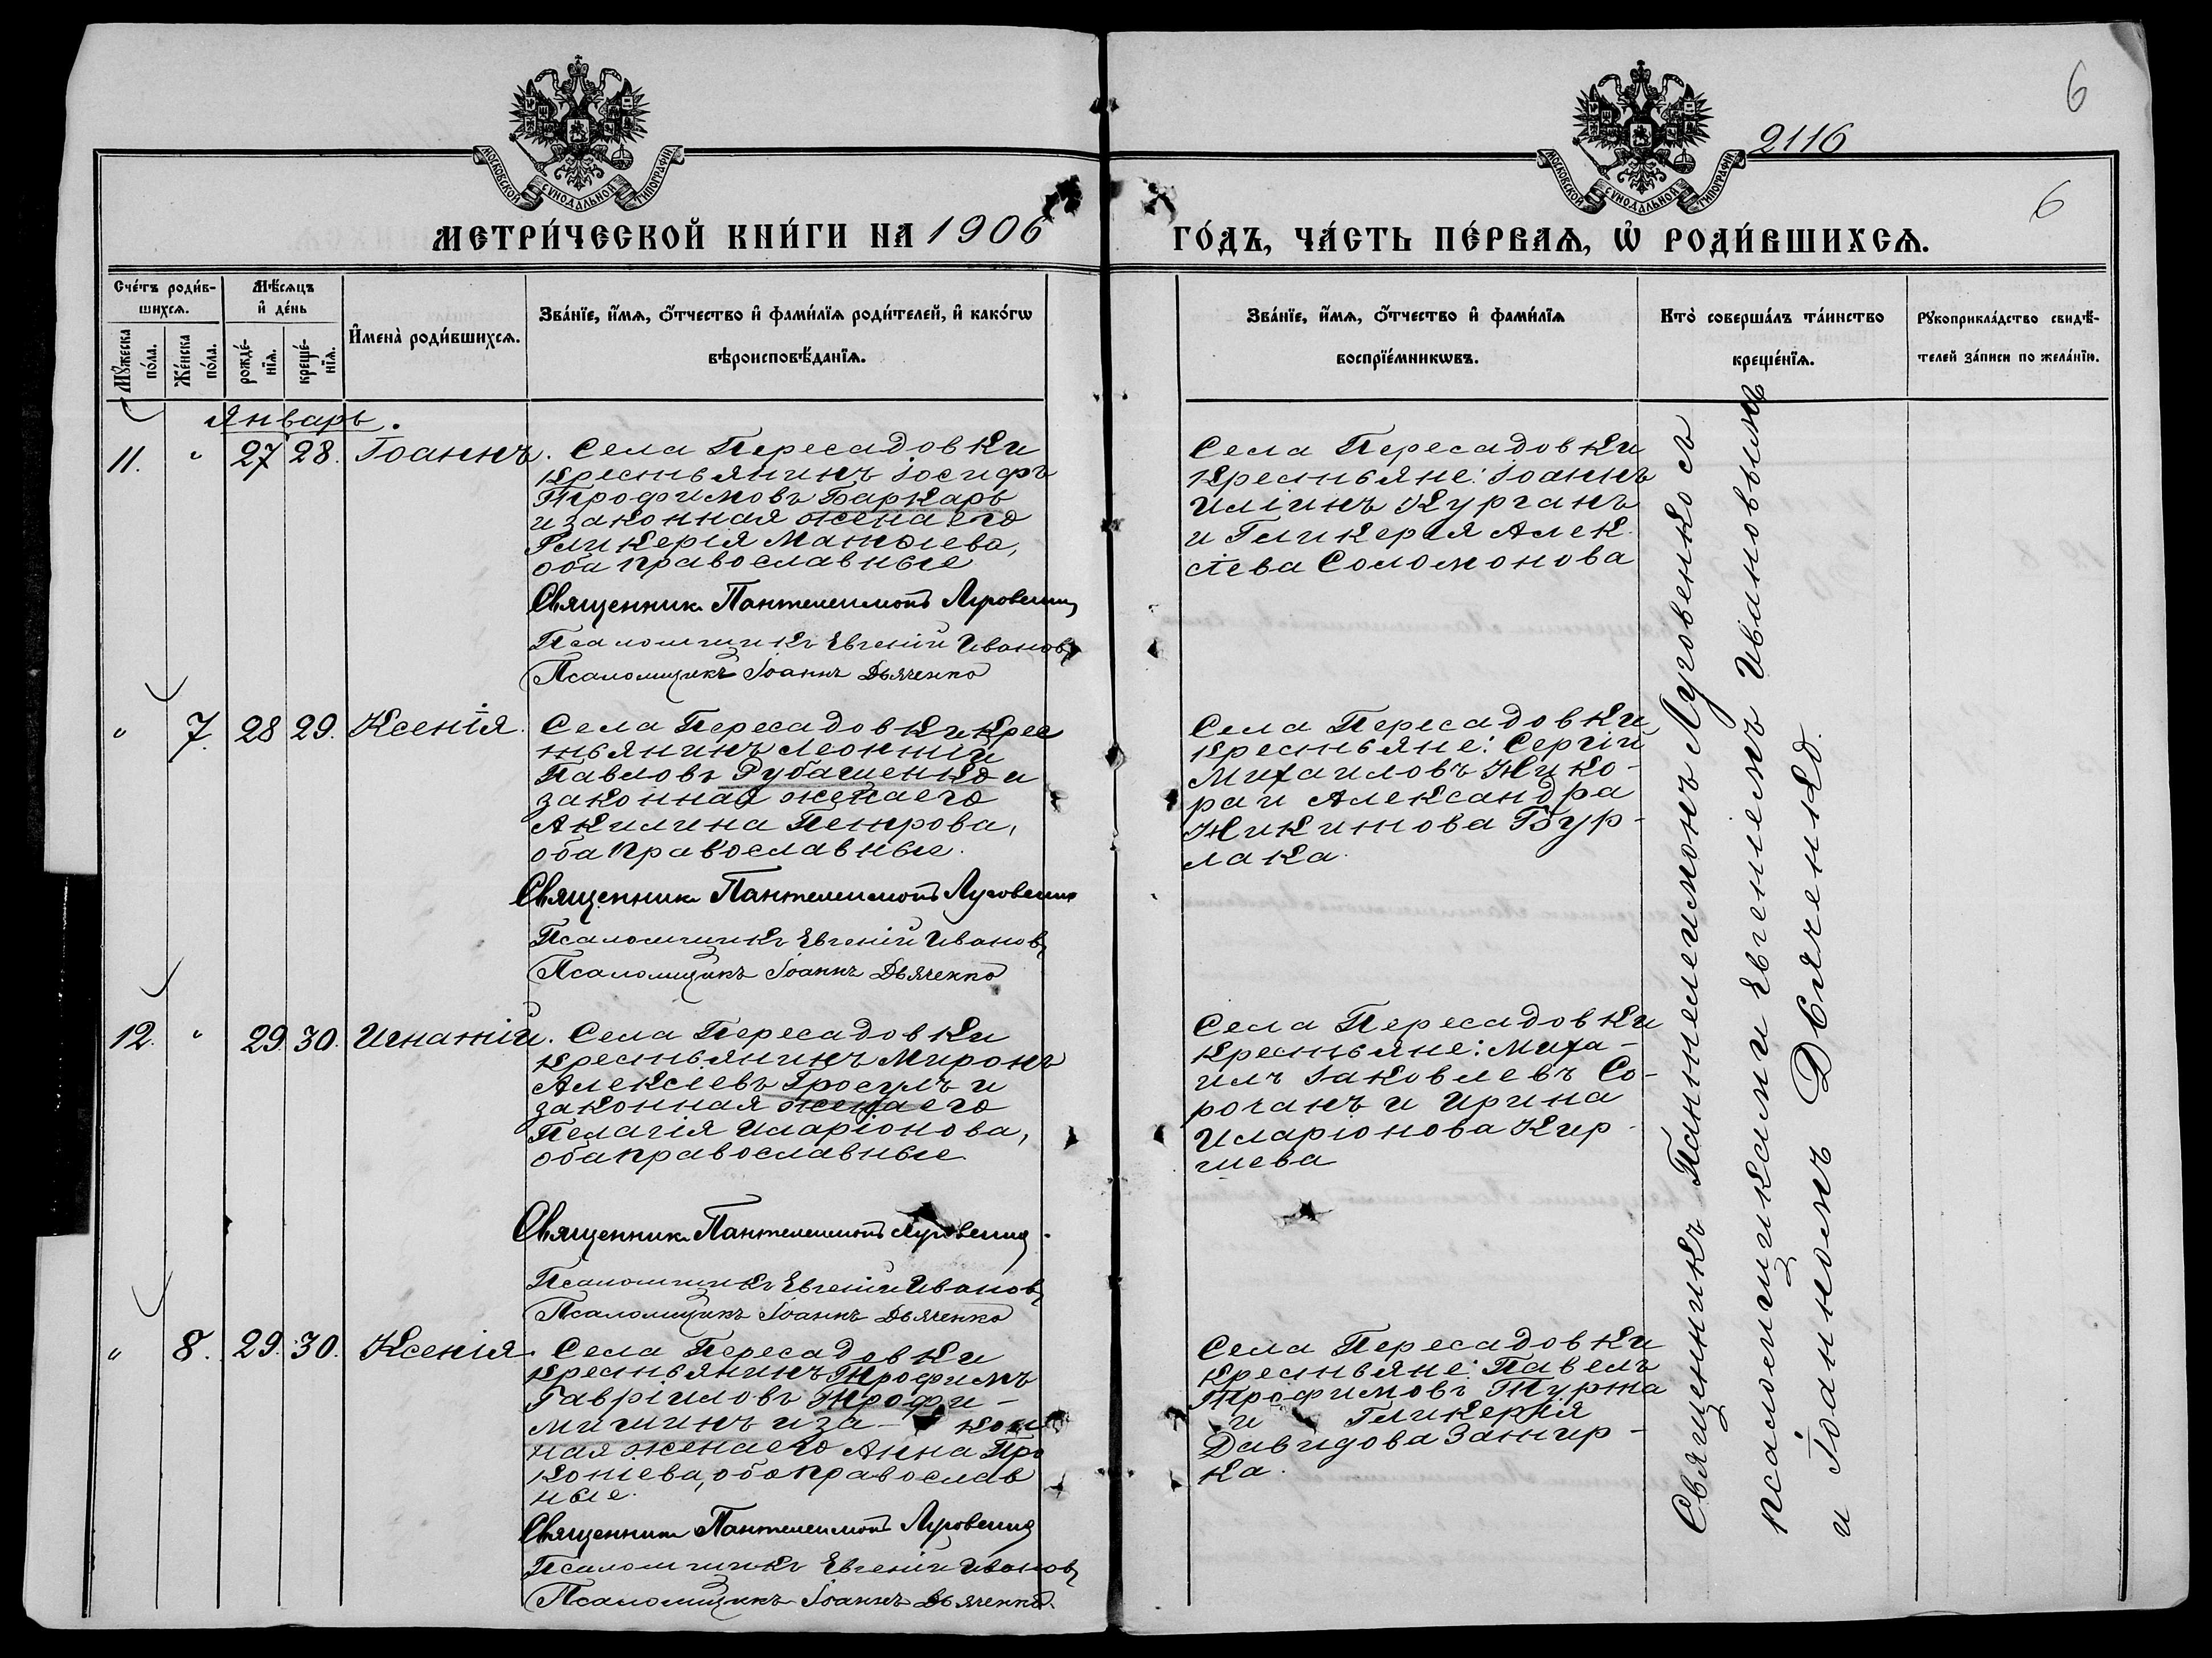 6
2116
6
МОСКОВСКОЙ СѴНОДАЛЬНОЙ ТИПОГРАФІИ
МОСКОВСКОЙ СѴНОДАЛЬНОЙ ТИПОГРАФІИ
МЕТРИ́ЧЕСКОЙ КНИ́ГИ НА 1906
ГО́ДЪ, ЧА́СТЬ ПЕ́РВАѦ, Ѡ҆ РОДИ́ВШИХСѦ.
Сче́тъ роди́в-
шихсѧ.
Мꙋ́жеска по́ла.
Же́нска по́ла.
Мѣ́сѧцъ
и҆ де́нь
рожде́-
нїѧ.
креще́-
нїѧ.
И҆мена̀ роди́вшихсѧ.
Зва́нїе, и҆́мѧ, ѻ҆́тчество и҆ фами́лїѧ роди́телей, и҆ како́гѡ
вѣроисповѣ́данїѧ.
Зва́нїе, и҆́мѧ, ѻ҆́тчество и҆ фами́лїѧ
воспрїе́мникѡвъ.
Кто̀ соверша́лъ та́инство
креще́нїѧ.
Рꙋкоприкла́дство свидѣ́-
телей за́писи по жела́нїю.
Январь.
11. " 27 28. Іоаннъ.
Села Пересадовки
крестьянинъ Іосифъ
Трофимовъ Баркарь
и законная жена его
Гликерія Матѳіева,
оба православные
Священник Пантелеимонъ Луговенко
Псаломщикъ Евгеній Ивановъ
Псаломщикъ Іоаннъ Дьяченко
Села Пересадовки
крестьяне: Іоаннъ
Иліинъ Курганъ
и Гликерія Алек
сіева Соломонова
" 7. 28 29. Ксенія.
Села Пересадовки крес
тьянинъ Леонтій
Павловъ Рубашенко и
законная жена его
Акилина Петрова,
оба православные.
Священник Пантелеимонъ Луговенко
Псаломщикъ Евгеній Ивановъ
Псаломщикъ Іоаннъ Дьяченко
Села Пересадовки
крестьяне: Сергій
Михаиловъ Жико-
ра и Александра
Никитова Бур-
лака.
12. " 29. 30. Игнатій.
Села Пересадовки
крестьянинъ Миронъ
Алексіевъ Гросулъ и
законная жена его
Пелагія Иларіонова,
оба православные
Священник Пантелеимонъ Луговенко
Псаломщикъ Евгеній Ивановъ
Псаломщикъ Іоаннъ Дьяченко
Села Пересадовки
крестьяне: Миха-
илъ Іаковлевъ Со-
рочанъ и Ирина
Иларіонова Кир-
шева
" 8. 29. 30. Ксенія.
Села Пересадовки
крестьянинъ Трофимъ
Гавріиловъ Трофи-
мишинъ и за- кон
ная жена его Анна Про
копіева, оба православ
ные.
Священник Пантелеимонъ Луговенко
Псаломщикъ Евгеній Ивановъ
Псаломщикъ Іоаннъ Дьяченко
Села Пересадовки
крестьяне: Павелъ
Трофимовъ Туржа
и Гликерия
Давидова Занчир-
ка.
Священникъ Пантелеимонъ Луговенко съ
псаломщиками Евгеніемъ Ивановымъ
и Іоанномъ Дьяченко.